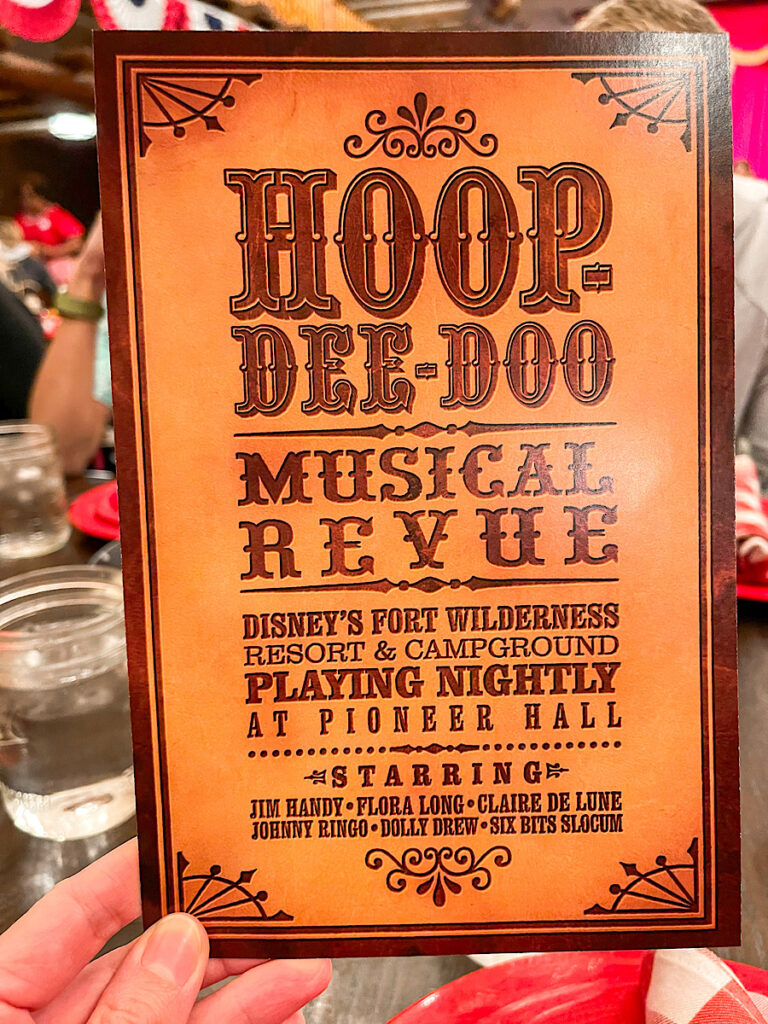 HOOP-
DEE-DOO
MUSICAL
REVUE
DISNEY'S FORT WILDERNESS
RESORT & CAMPGROUND
PLAYING NIGHTLY
AT PIONEER HALL
STARRING
JIM HANDY•FLORA LONG•CLAIRE DE LUNE
JOHNNY RINGO•DOLLY DREW•SIX BITS SLOCUM